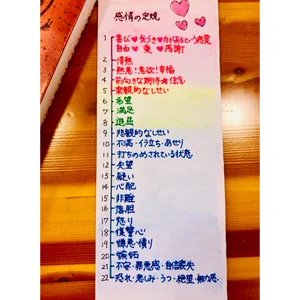 感情の定規
1 喜び♥気づき♥力があるという感覚
自由 ♥ 愛 ♥ 感謝
2 情熱
3 熱意!意欲!幸福
4 前向きな期待★信念
5 楽観的なしせい
6 希望
7 満足
8 退屈
9 悲観的なしせい
10 不満・イラ立ち・あせり
11 打ちのめされている状態
12 失望
13 疑い
14 心配
15 非難
16 落胆
17 怒り
18 復讐心
19 嫌悪・憤り
20 嫉妬
21 不安・罪悪感・自信喪失
22 恐れ・悲しみ・うつ・絶望・無力感